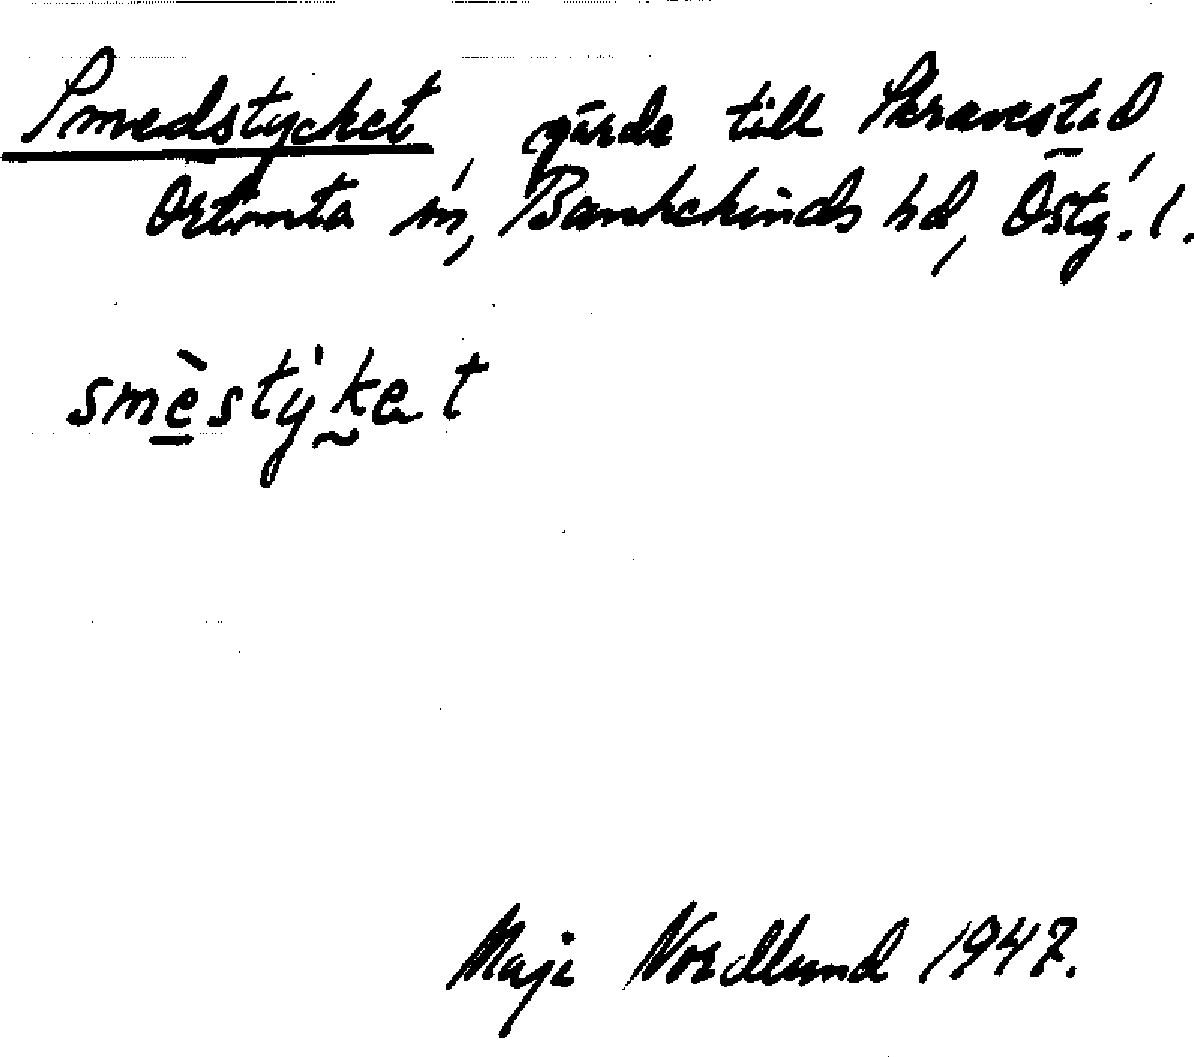 Smedstycket, gärde till Skravestad,
Örtomta sn, Bankekinds hd, Östg. l.
smèstýket
Maja Nordlund 1947.